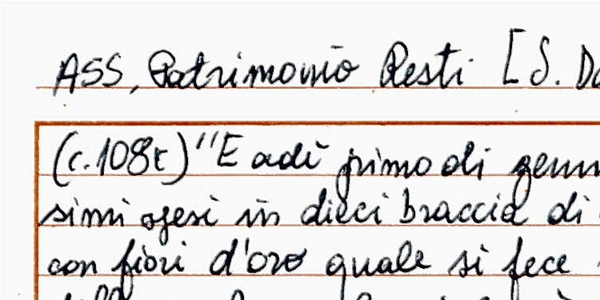 ASS, Patrimonio Resti [S. Do
(c.108r) "E adì primo di genn
simi spesi in dieci braccia di
con fiori d'oro quale si fece